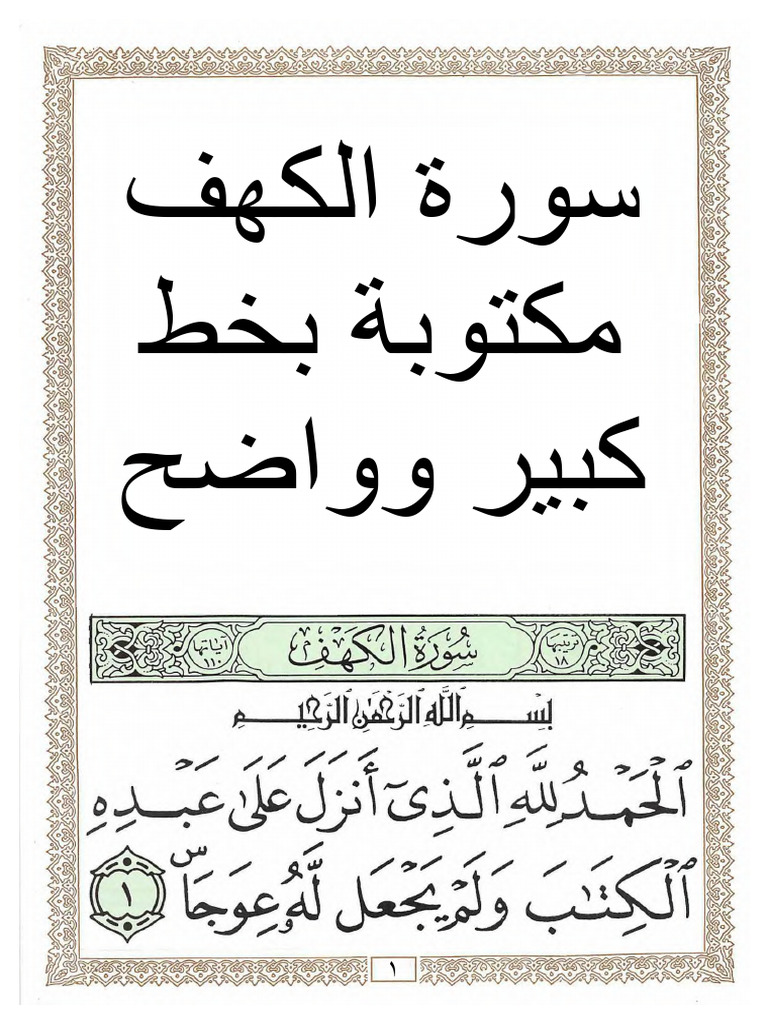 سورة الكهف
مكتوبة بخط
كبير وواضح
ترتيبها ١٨ سُورَةُ الكَهْفِ آياتها ١١٠
بِسْمِ ٱللَّهِ ٱلرَّحْمَٰنِ ٱلرَّحِيمِ
ٱلْحَمْدُ لِلَّهِ ٱلَّذِىٓ أَنزَلَ عَلَىٰ عَبْدِهِ
ٱلْكِتَٰبَ وَلَمْ يَجْعَل لَّهُۥ عِوَجَاۜ ١
١